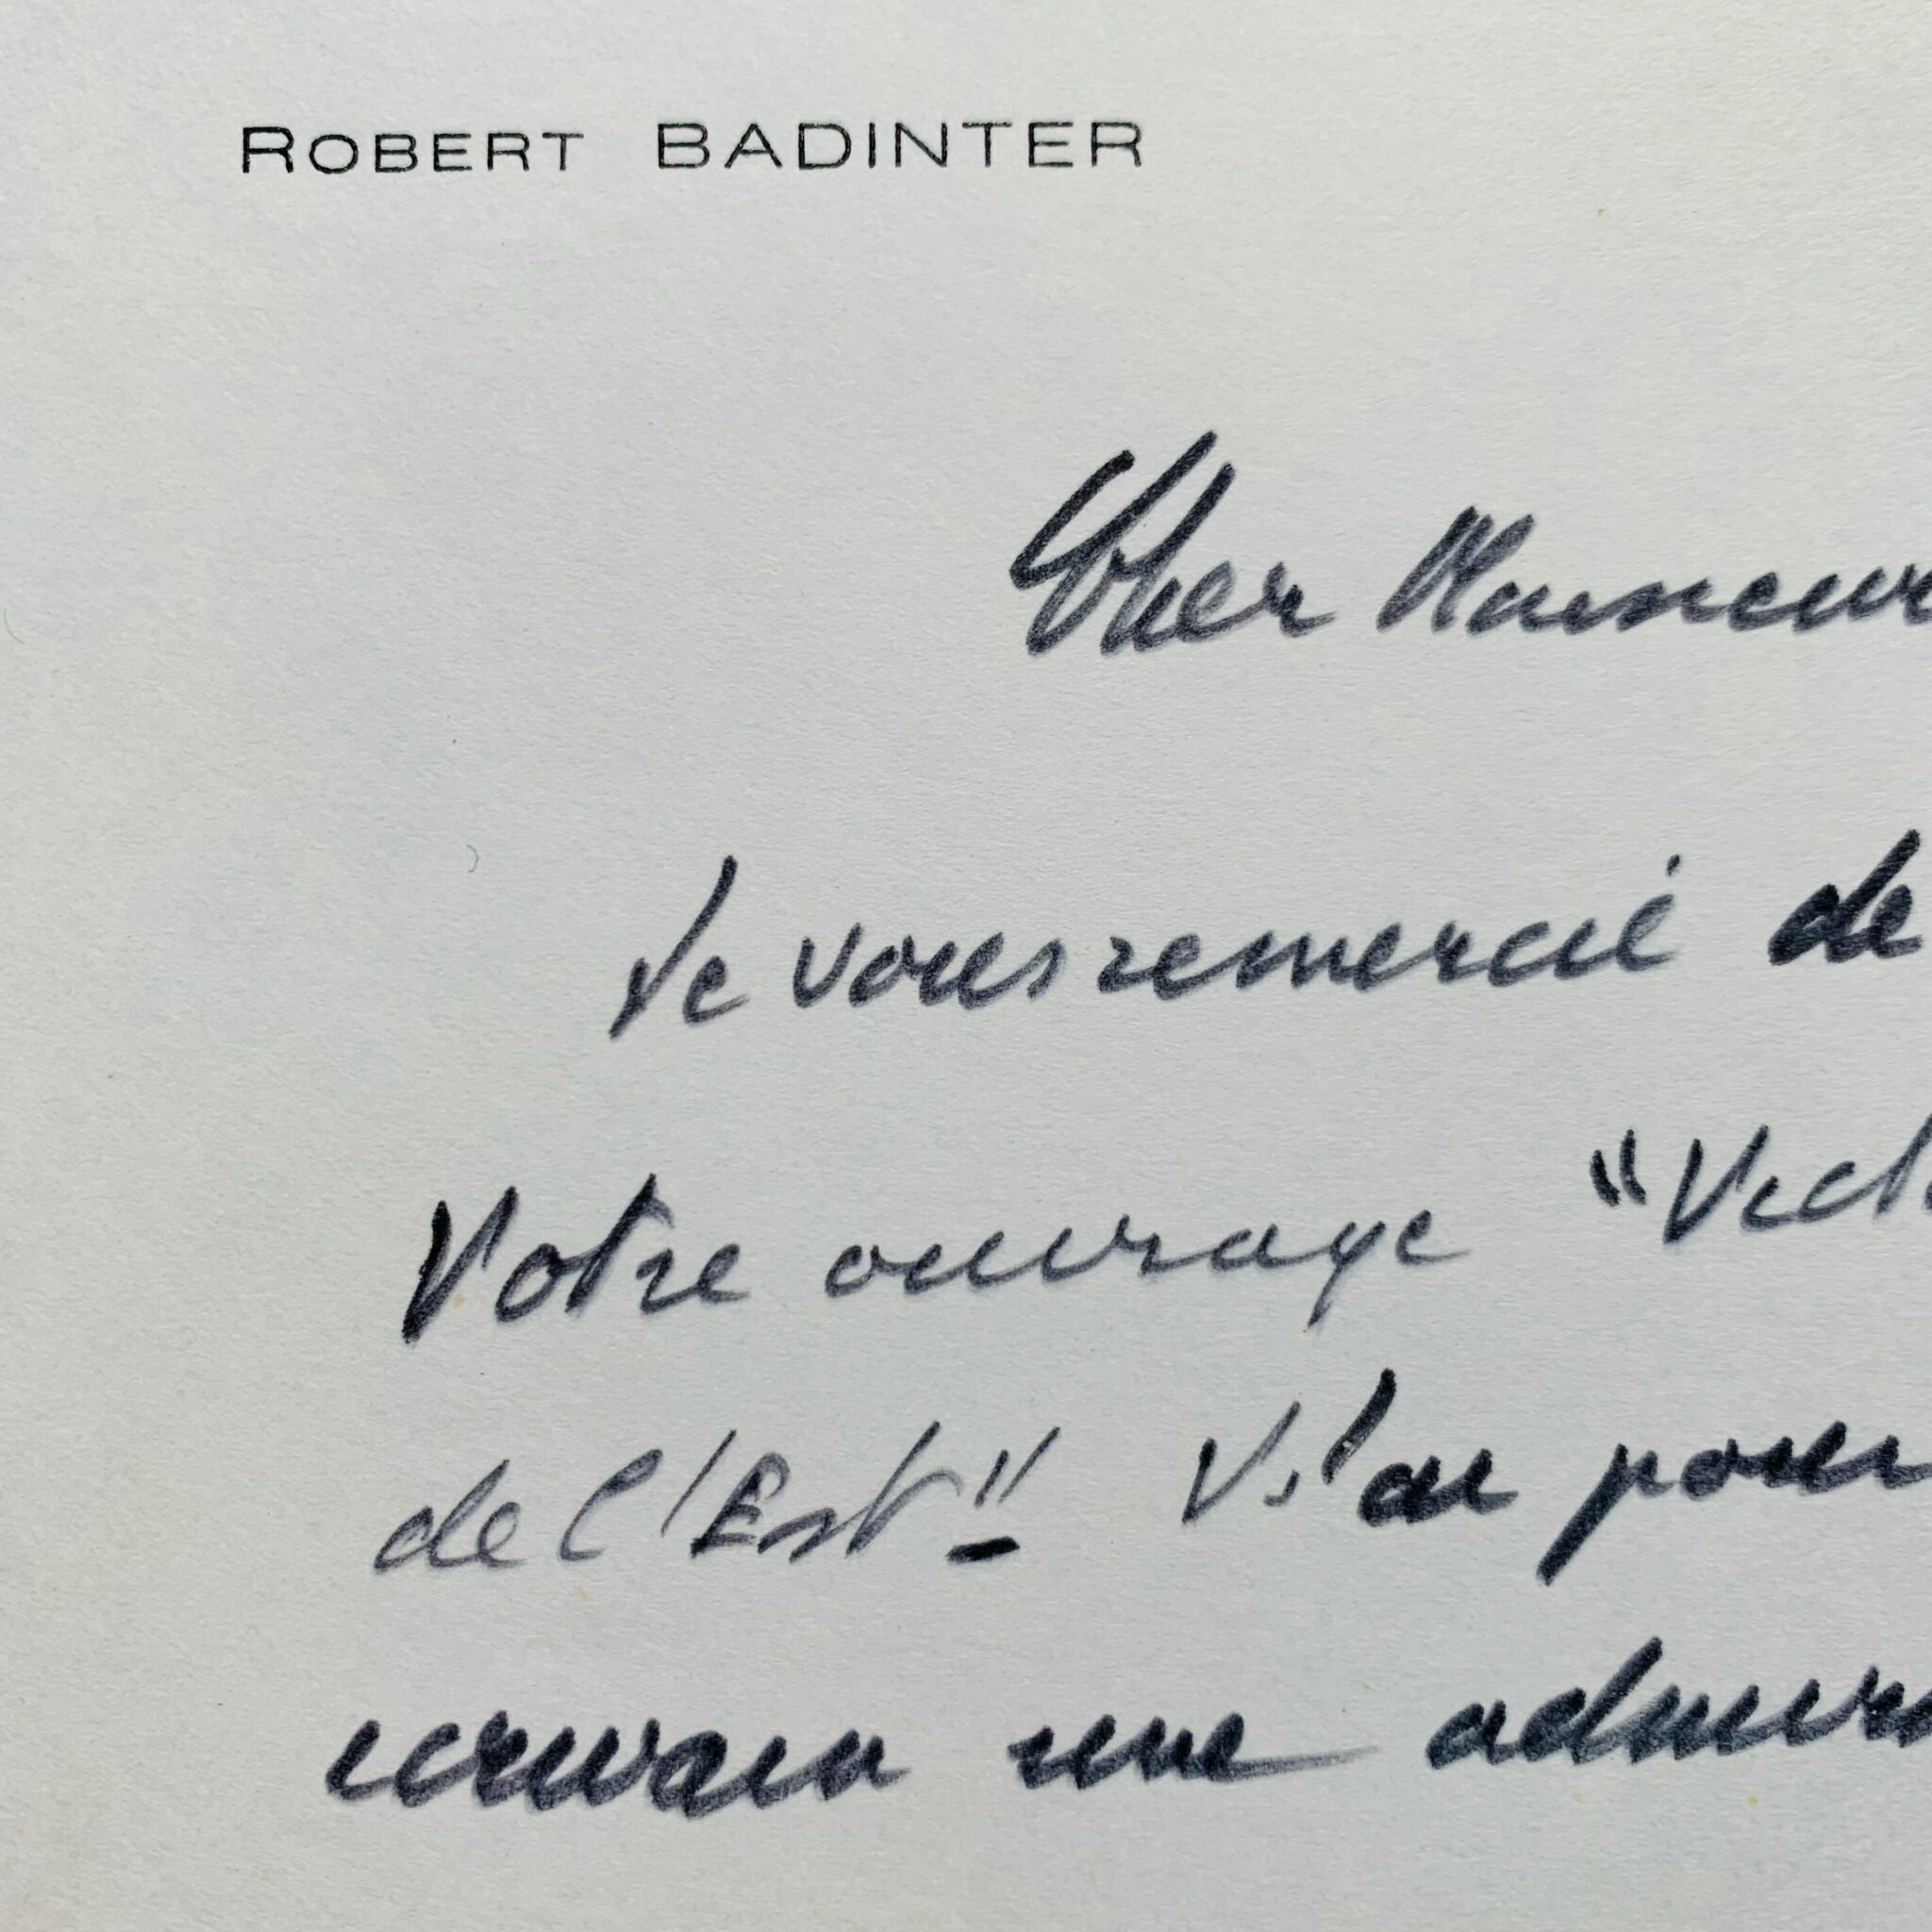 ROBERT BADINTER
Cher Monsieur
Je vous remercie de
Votre ouvrage "Vict
de l'Est". J'ai pour
écrivain une admira